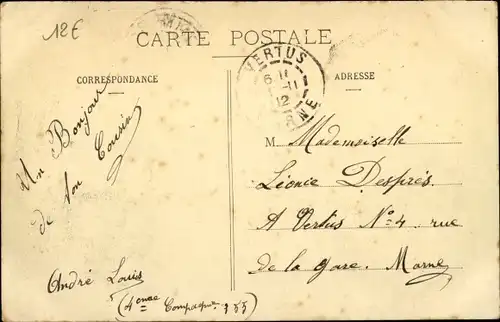 12€
CARTE POSTALE
CORRESPONDANCE
ADRESSE
VERTUS
6
11
12
NE
Un Bonjour
de ton Cousin
André Louis
(4eme Compagnie 155)
M. Mademoiselle
Léonie Després.
A Vertus No 4 rue
de la gare. Marne